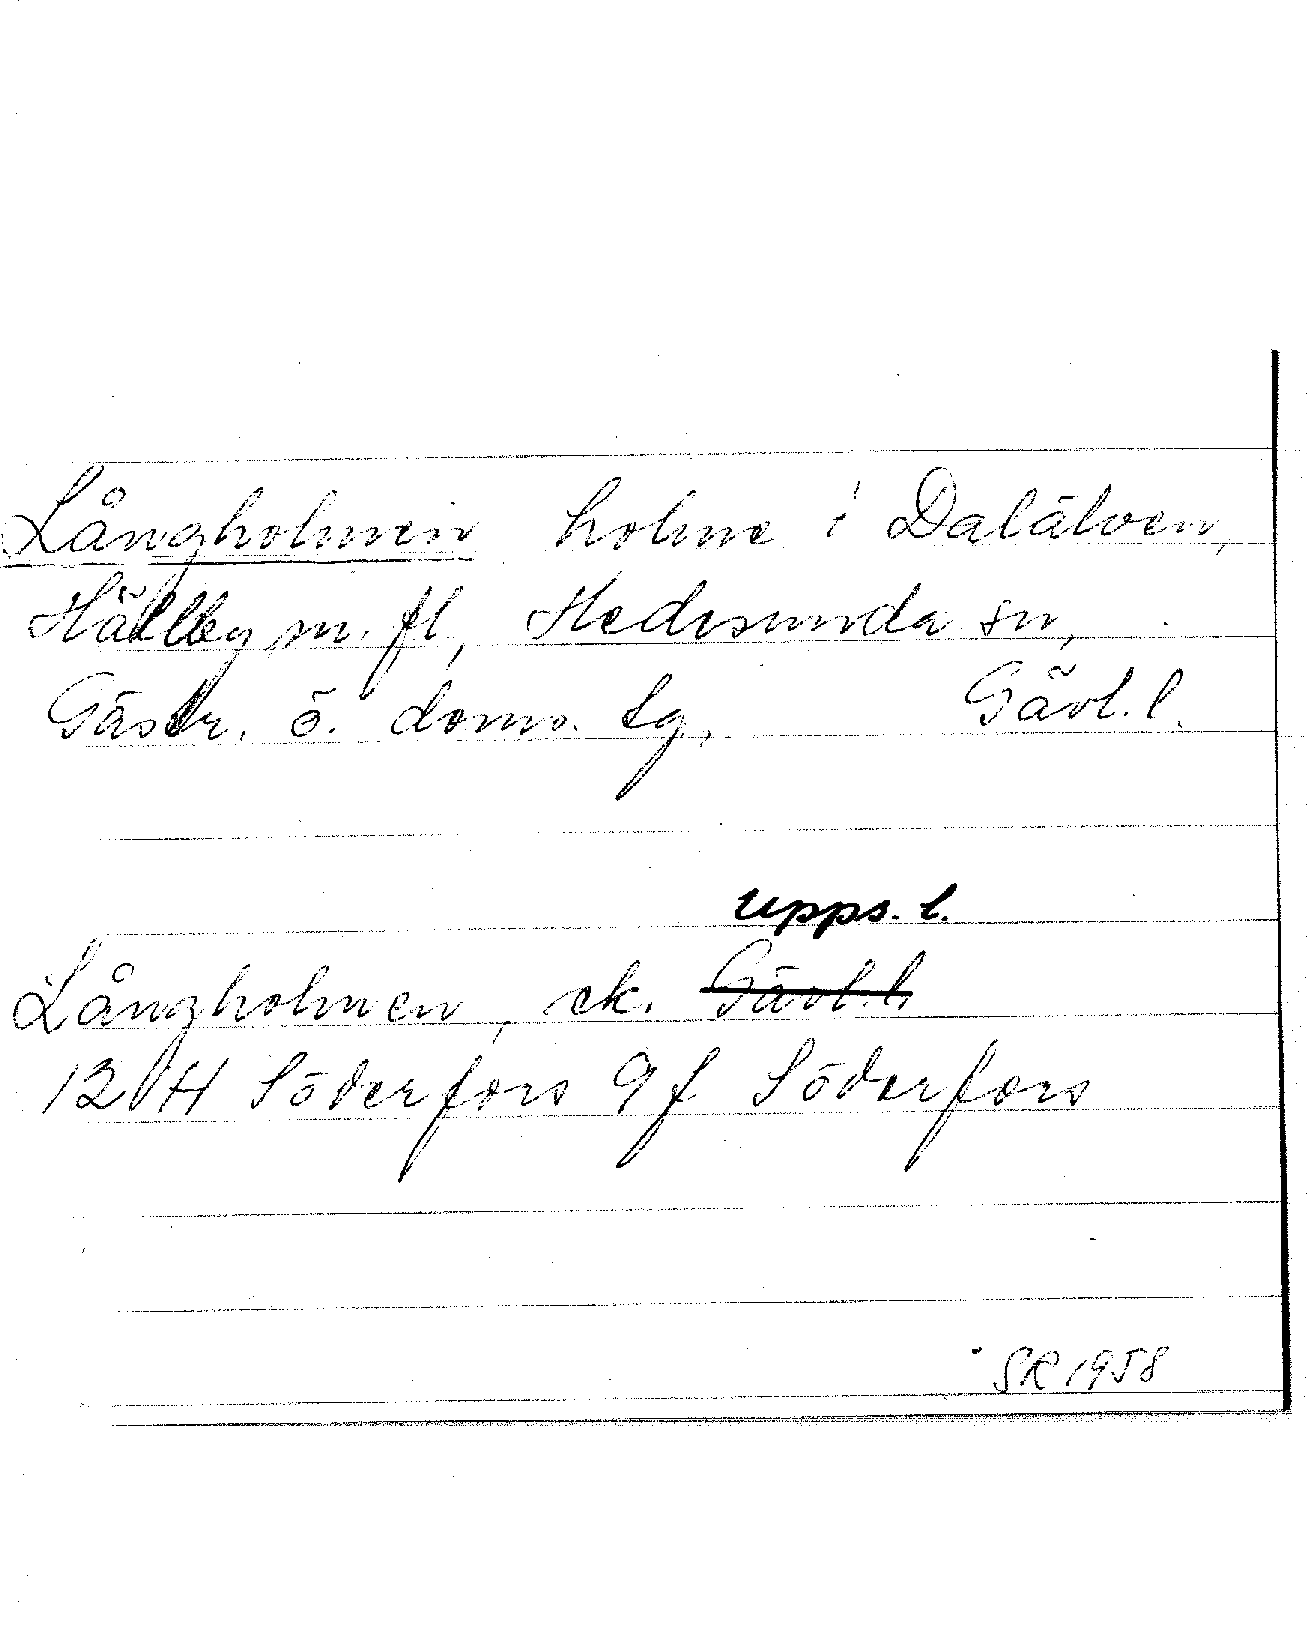 Långholmen holme i Dalälven,
Hällby m. fl, Hedesunda sn,
Gästr. ö. doms. lg, Gävl. l.
Upps. l.
Långholmen, ek. Gävl. l.
12 H Söderfors 9f Söderfors
SR 1958